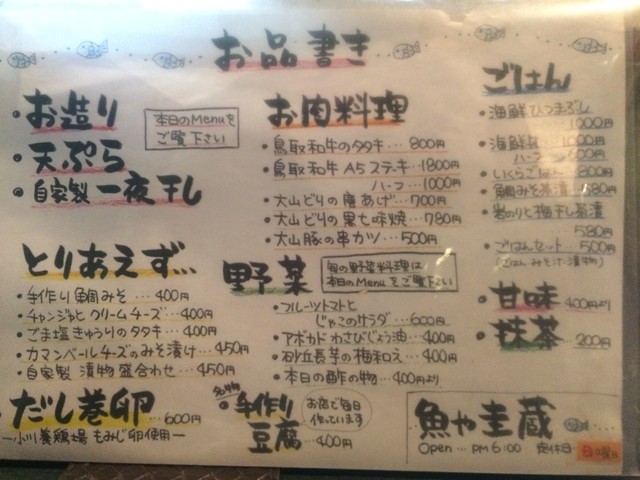 お品書き
・お造り
・天ぷら
・自家製 一夜干し
本日のMenuを
ご覧下さい
お肉料理
・鳥取和牛のタタキ…800円
・鳥取和牛A5ステーキ…1800円
ハーフ…1000円
・大山どりの唐あげ…700円
・大山どりの黒七味焼…780円
・大山豚の串カツ…500円
ごはん
・海鮮ひつまぶし
1000円
・海鮮
ハーフ…600円
・いくらごはん…800円
・鯛みそ茶漬…580円
・岩のりと梅干し茶漬
580円
・ごはんセット…500円
(ごはん みそ汁 漬物)
・甘味 400円より
・抹茶 200円
とりあえず…
・手作り鯛みそ…400円
・チャンジャとクリームチーズ…400円
・ごま塩きゅうりのタタキ…400円
・カマンベールチーズのみそ漬け…450円
・自家製 漬物盛合わせ…450円
・だし巻卵 600円
ー小川養鶏場 もみじ卵使用ー
野菜
旬の野菜料理は
本日のMenuをご覧下さい
・フルーツトマトと
じゃこのサラダ…600円
・アボカドわさびじょう油…400円
・砂丘長芋の梅和え…400円
・本日の酢の物…400円より
名物
・手作り
豆腐…400円
お店で毎日
作っています
魚や圭蔵
Open…PM6:00 定休日 日曜日